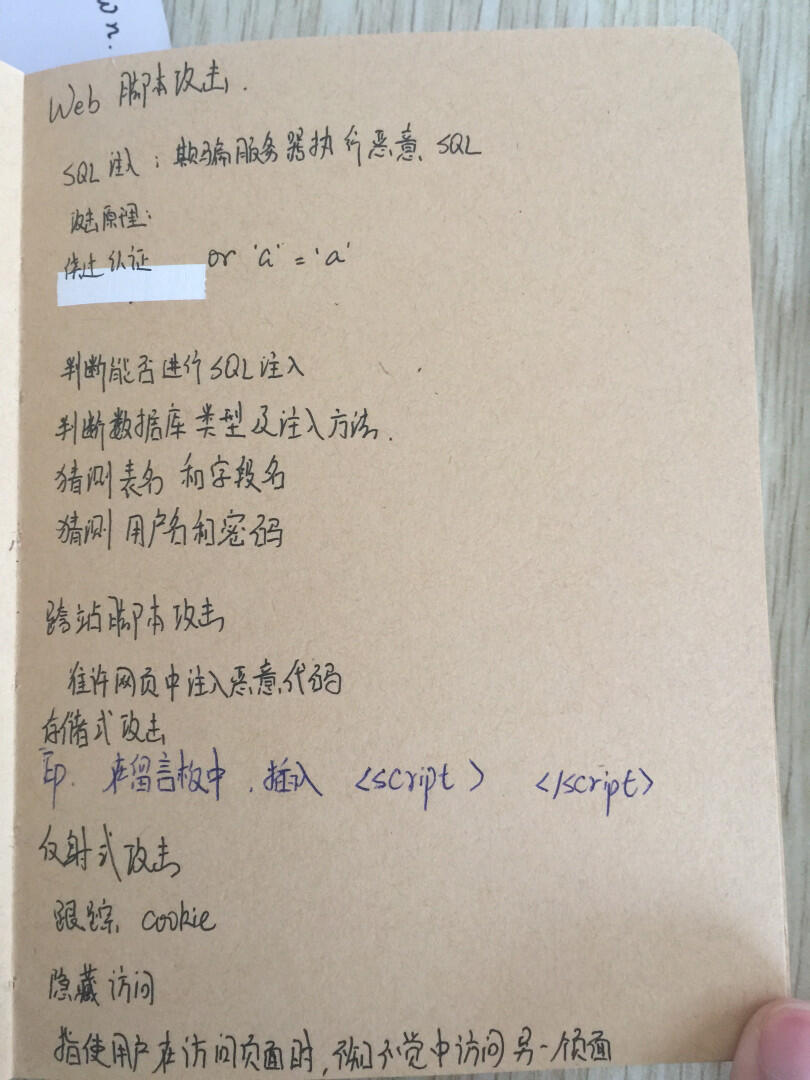 wn.
Web 脚本攻击.
SQL 注入: 欺骗服务器执行恶意 SQL
攻击原理:
认证 or 'a' = 'a'
判断能否进行 SQL 注入
判断数据库类型及注入方法.
猜测表名和字段名
猜测用户名和密码
跨站脚本攻击
准许网页中注入恶意代码
存储式攻击
即. 在留言板中, 插入 <script> </script>
反射式攻击
跟踪 cookie
隐藏访问
指使用户在访问页面时, 不知不觉中访问另一页面